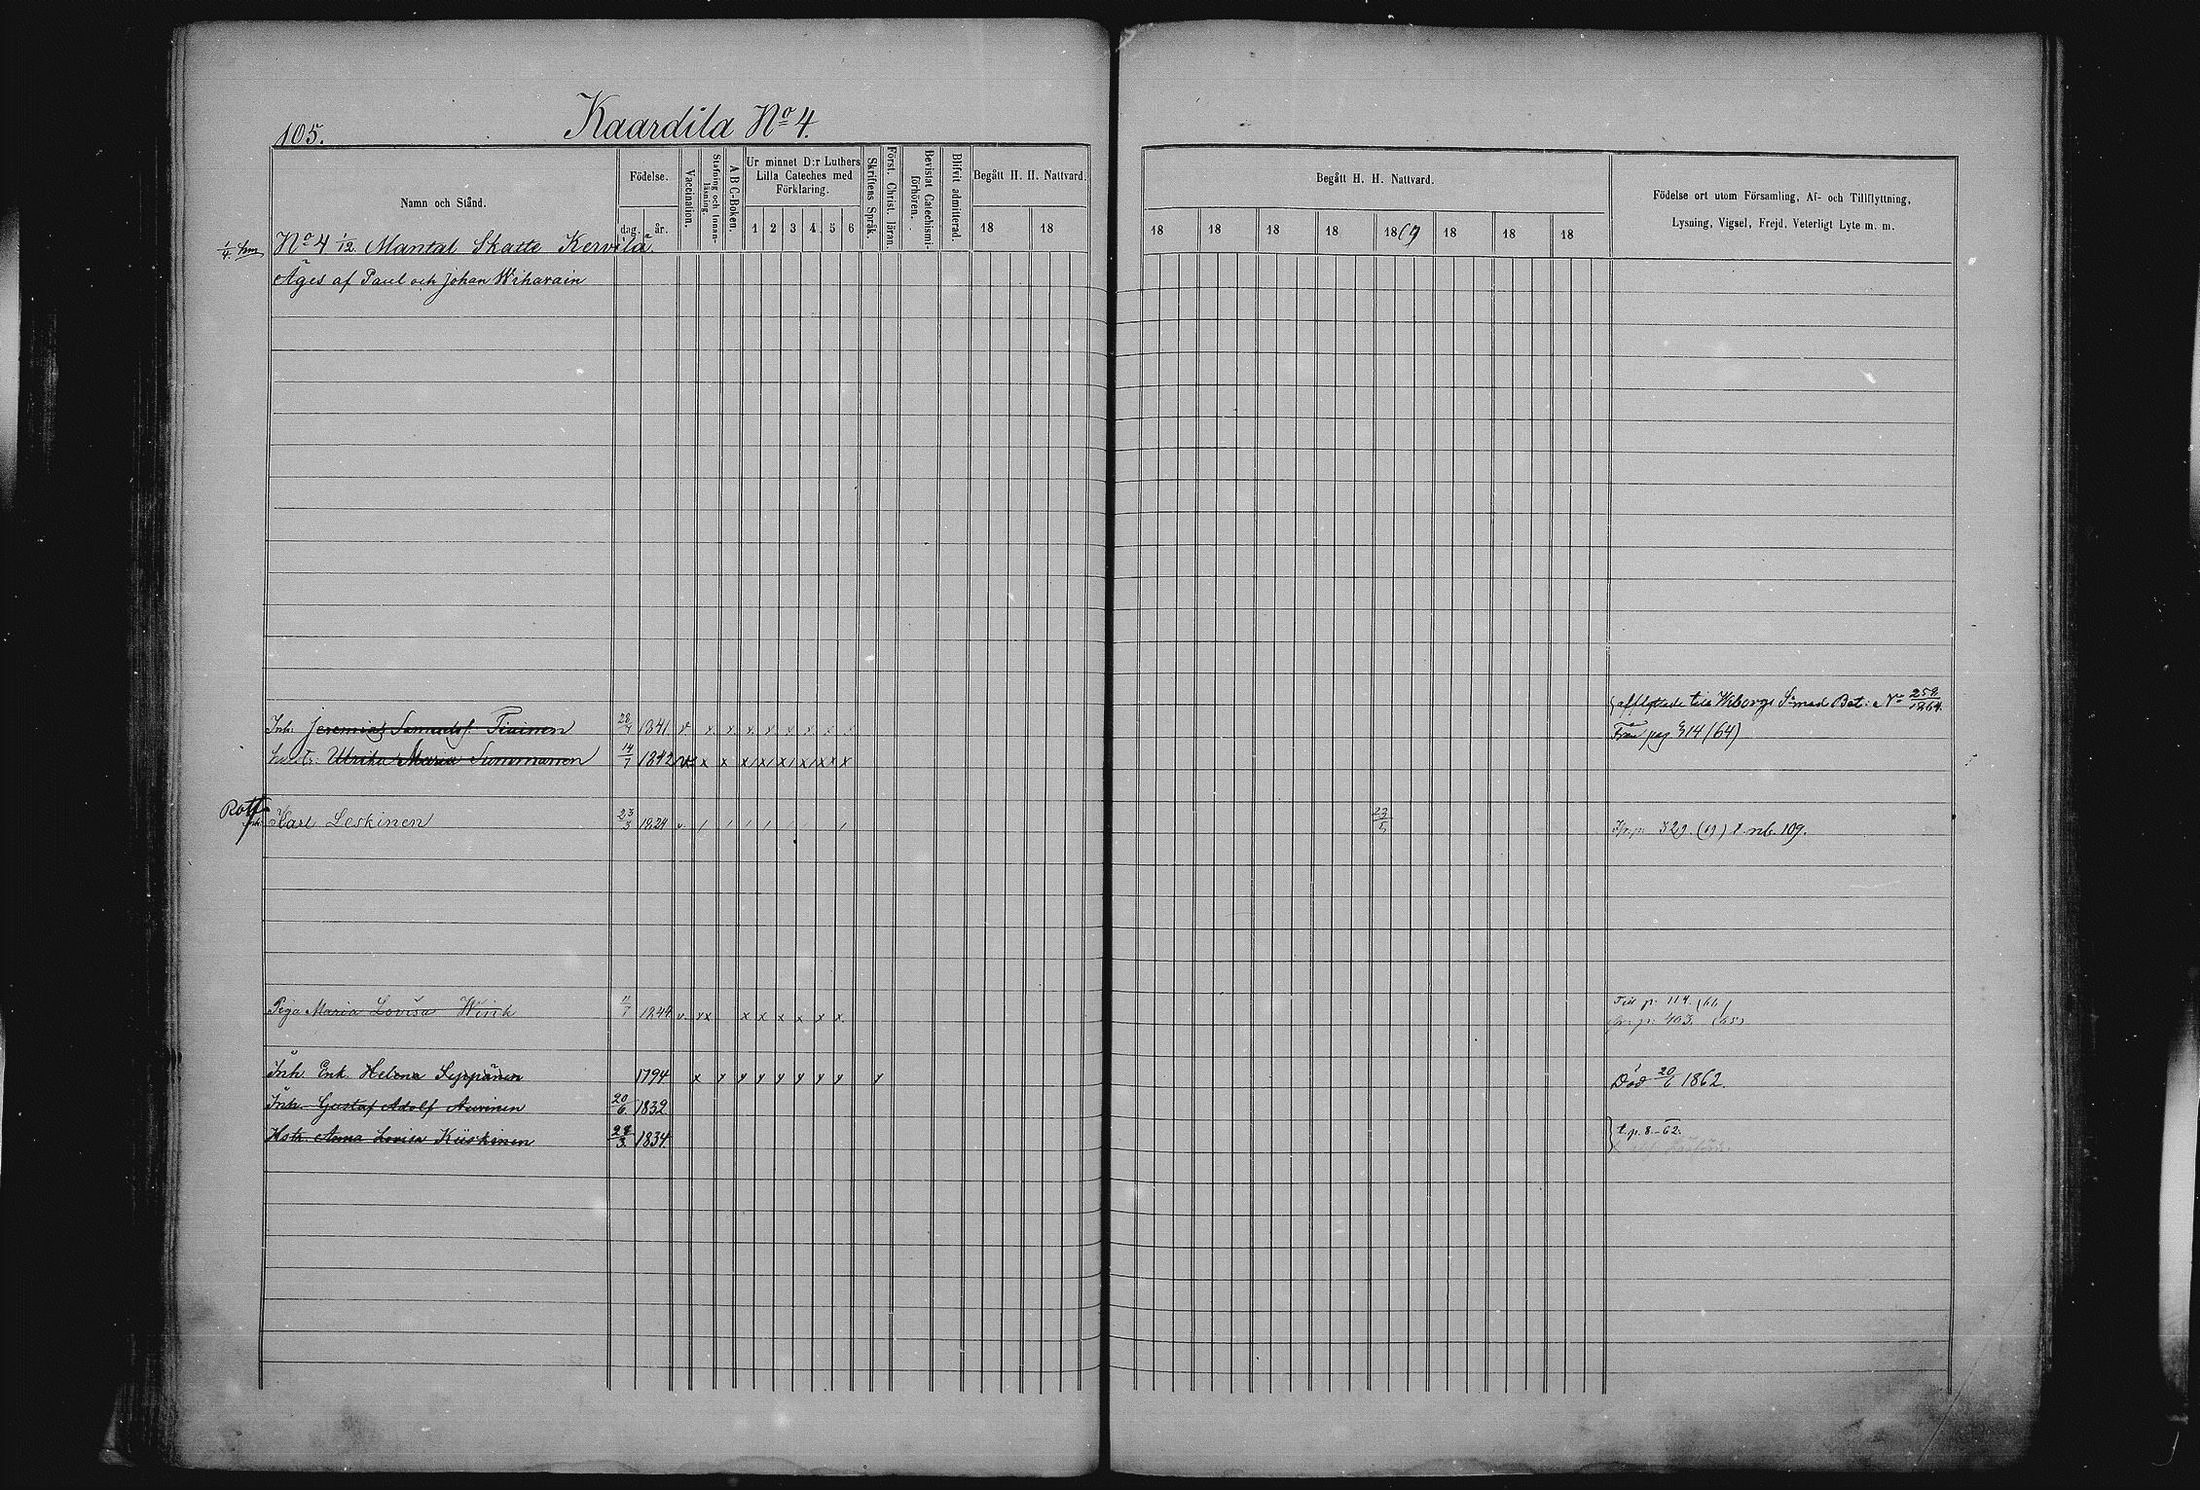 105.
Kaardila No 4.
Namn och Stånd.
Födelse.
dag. år.
Vaccination.
Stafning och Innanläsning.
A B C-Boken.
Ur minnet D:r Luthers Lilla Cateches med Förklaring.
1 2 3 4 5 6
Skriftens Språk.
Först. Christ. läran.
Bevistat Catechismiförhören.
Blifvit admitterad.
Begått H. H. Nattvard.
18 18
Begått H. H. Nattvard.
18 18 18 18 1869 18 18 18
Födelse ort utom Församling, Af- och Tillflyttning,
Lysning, Vigsel, Frejd, Veterligt Lyte m. m.
No 4 1/12 Mantal Skatte Kervilä
Äges af Paul och Johan Wiharain
afflyttade till Wiborgs Sn med Bet:a No 258/1864.
Inh. Jeremias Samuelsf. Tiainen 28/4 1841 v x x x x x x x x
Från pag 914 (64)
Ulrika Maria Summanen 14/7 1842 x x x x x x x x x
Karl Leskinen 23/3 1824 v. / / / / / / 23/5 329. (69) t. nb. 109.
Piga Maria Lovisa Wirk 11/7 1844 v. xx x x x x x x
p. 114. (66)
p. 403. (65)
Inh. Enk. Helena Seppänen 1794 x y y y y y y y y Död 20/6 1862.
Inh. Gustaf Adolf Auvinen 20/6 1832
Hstr. Anna Lovisa Kiiskinen 28/3 1834 t. p. 8.-62.